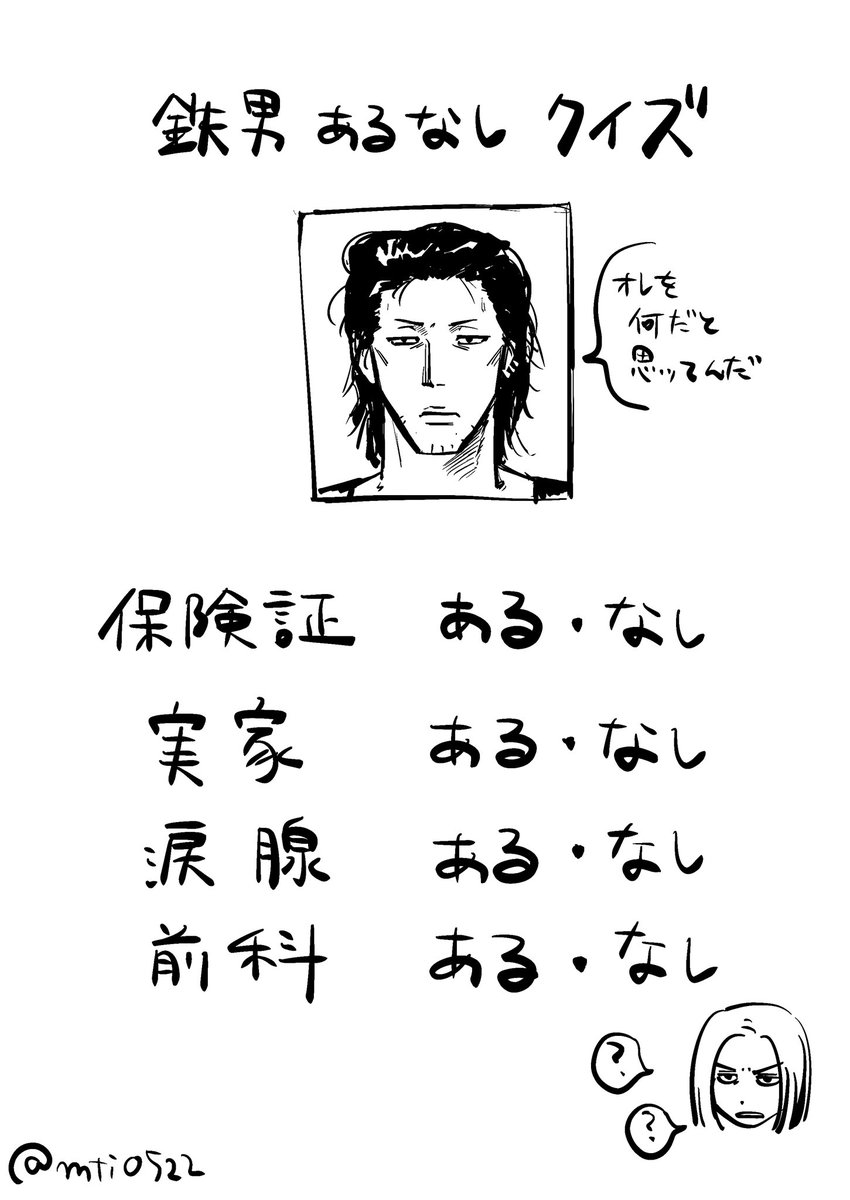 鉄男 あるなし クイズ
オレを
何だと
思ッてんだ
保険証 ある・なし
実家 ある・なし
涙腺 ある・なし
前科 ある・なし
?
?
@mti0522